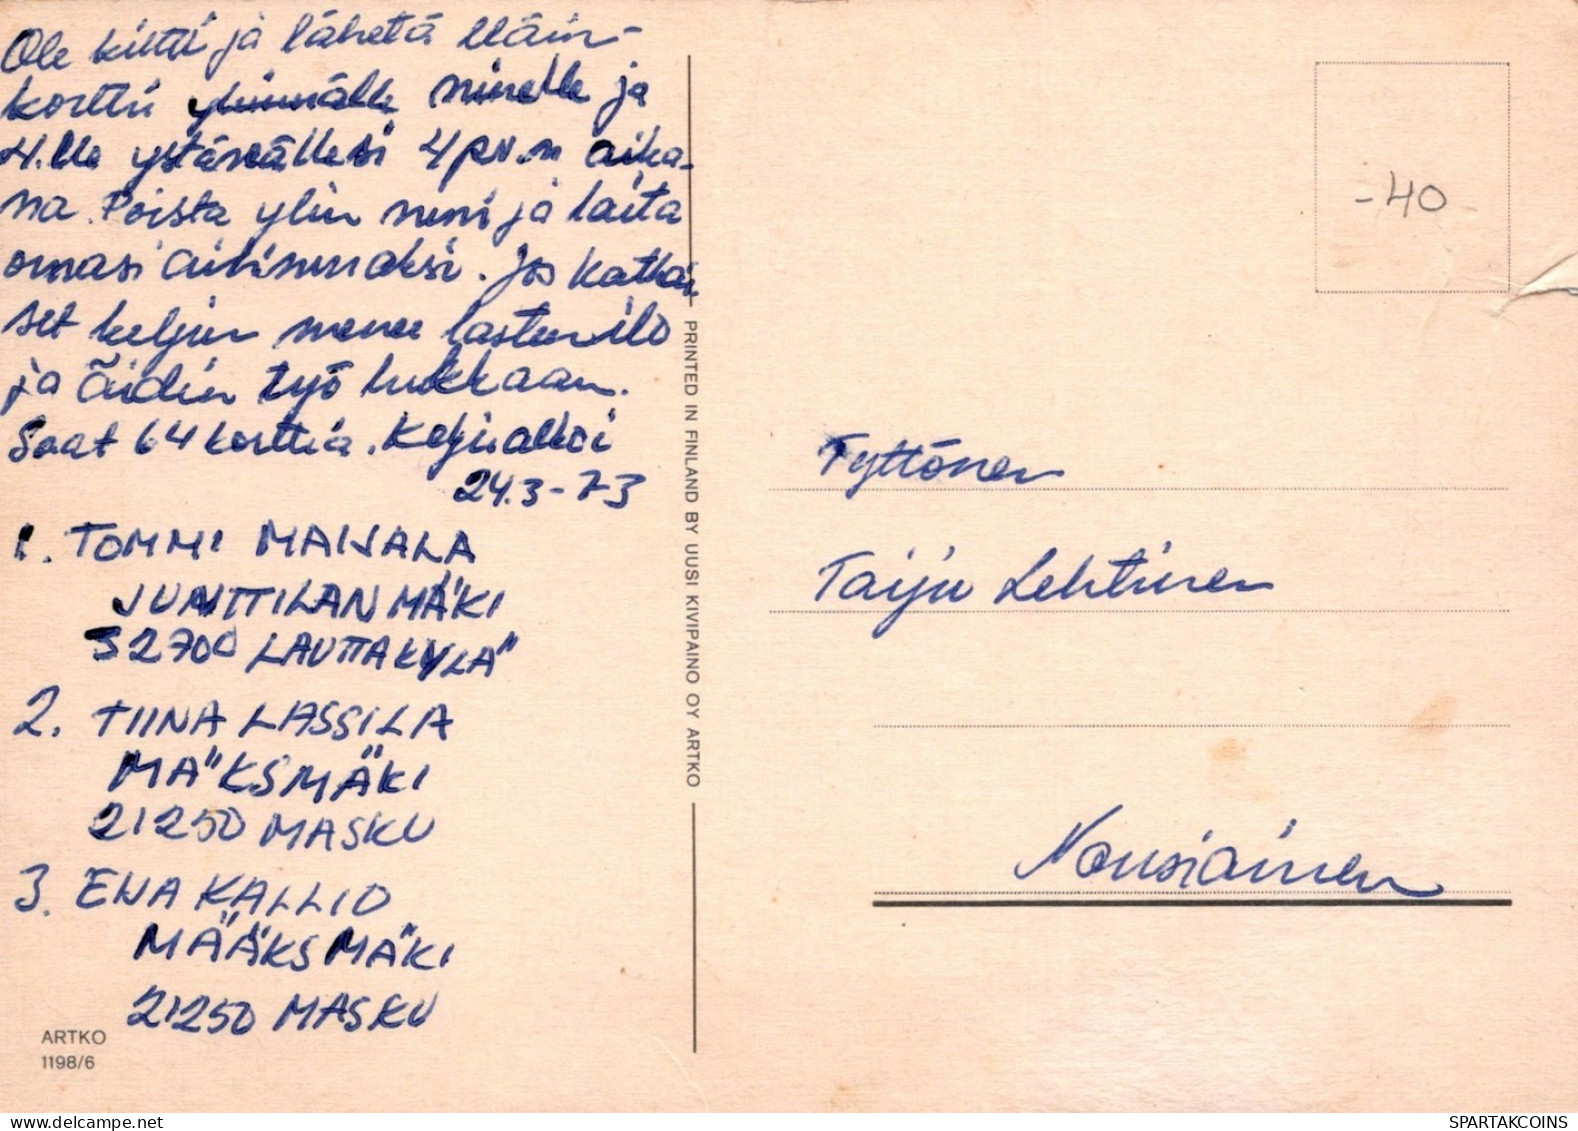 Ole kiltti ja lähetä eläin-
kortti ylimmälle nimelle ja
4.lle ystävällesi 4 pv.n aika-
na. Poista ylin nimi ja laita
omasi alimmaksi. Jos katkai
set ketjun menee lasten ilo
ja äidin työ hukkaan.
Saat 64 korttia. Ketju alkoi
24.3-73
1. TOMMI MAIJALA
JUNTTILANMÄKI
32700 LAUTTAKYLÄ
2. TIINA LASSILA
MÄKSMÄKI
21250 MASKU
3. EIJA KALLIO
MÄÄKSMÄKI
21250 MASKU
ARTKO
1198/6
PRINTED IN FINLAND BY UUSI KIVIPAINO OY ARTKO
-40
Tyttönen
Taiju Lehtinen
Nousiainen
SPARTAKCOINS
https://www.delcampe.net